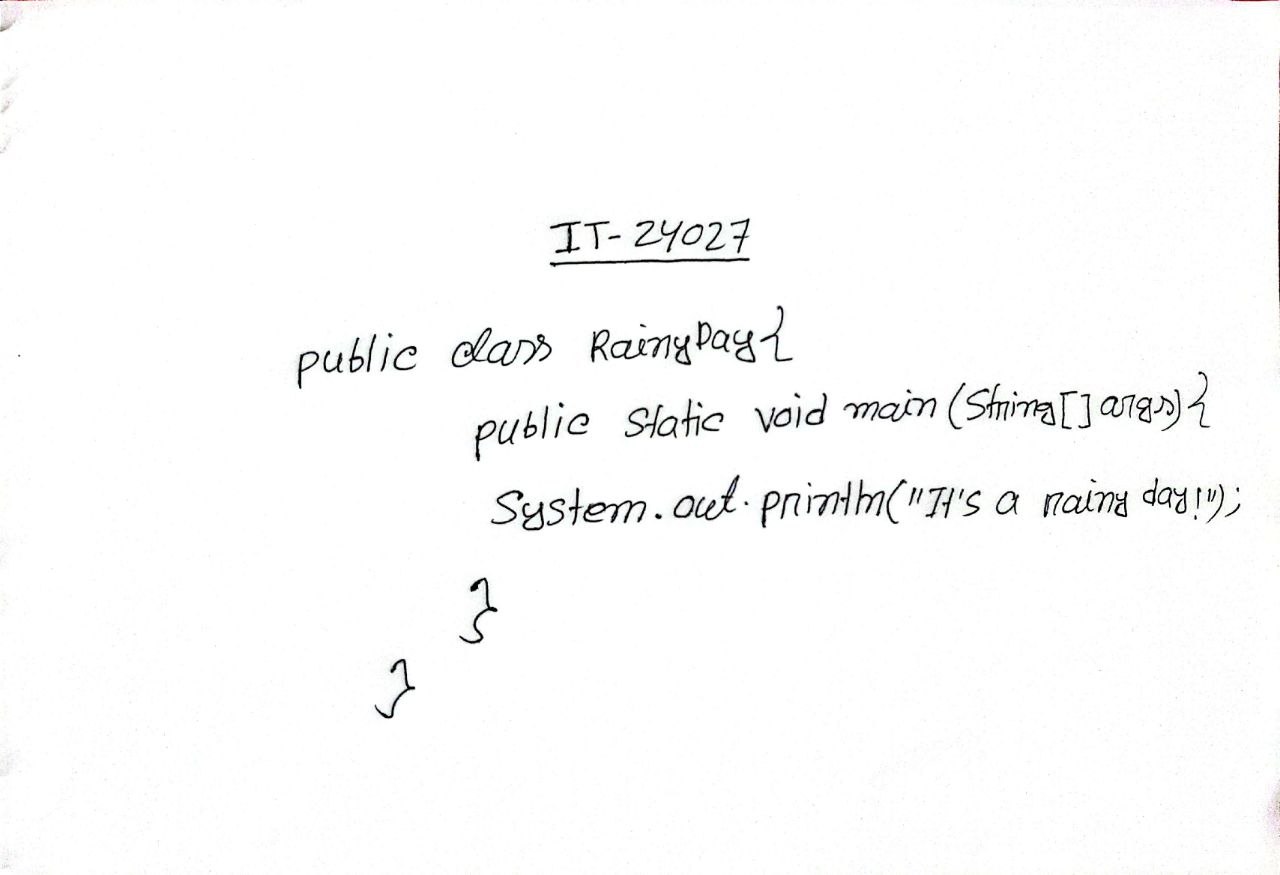 IT-24027
public class RainyDay{
public static void main (String[] args){
System.out.println("It's a rainy day!");
}
}